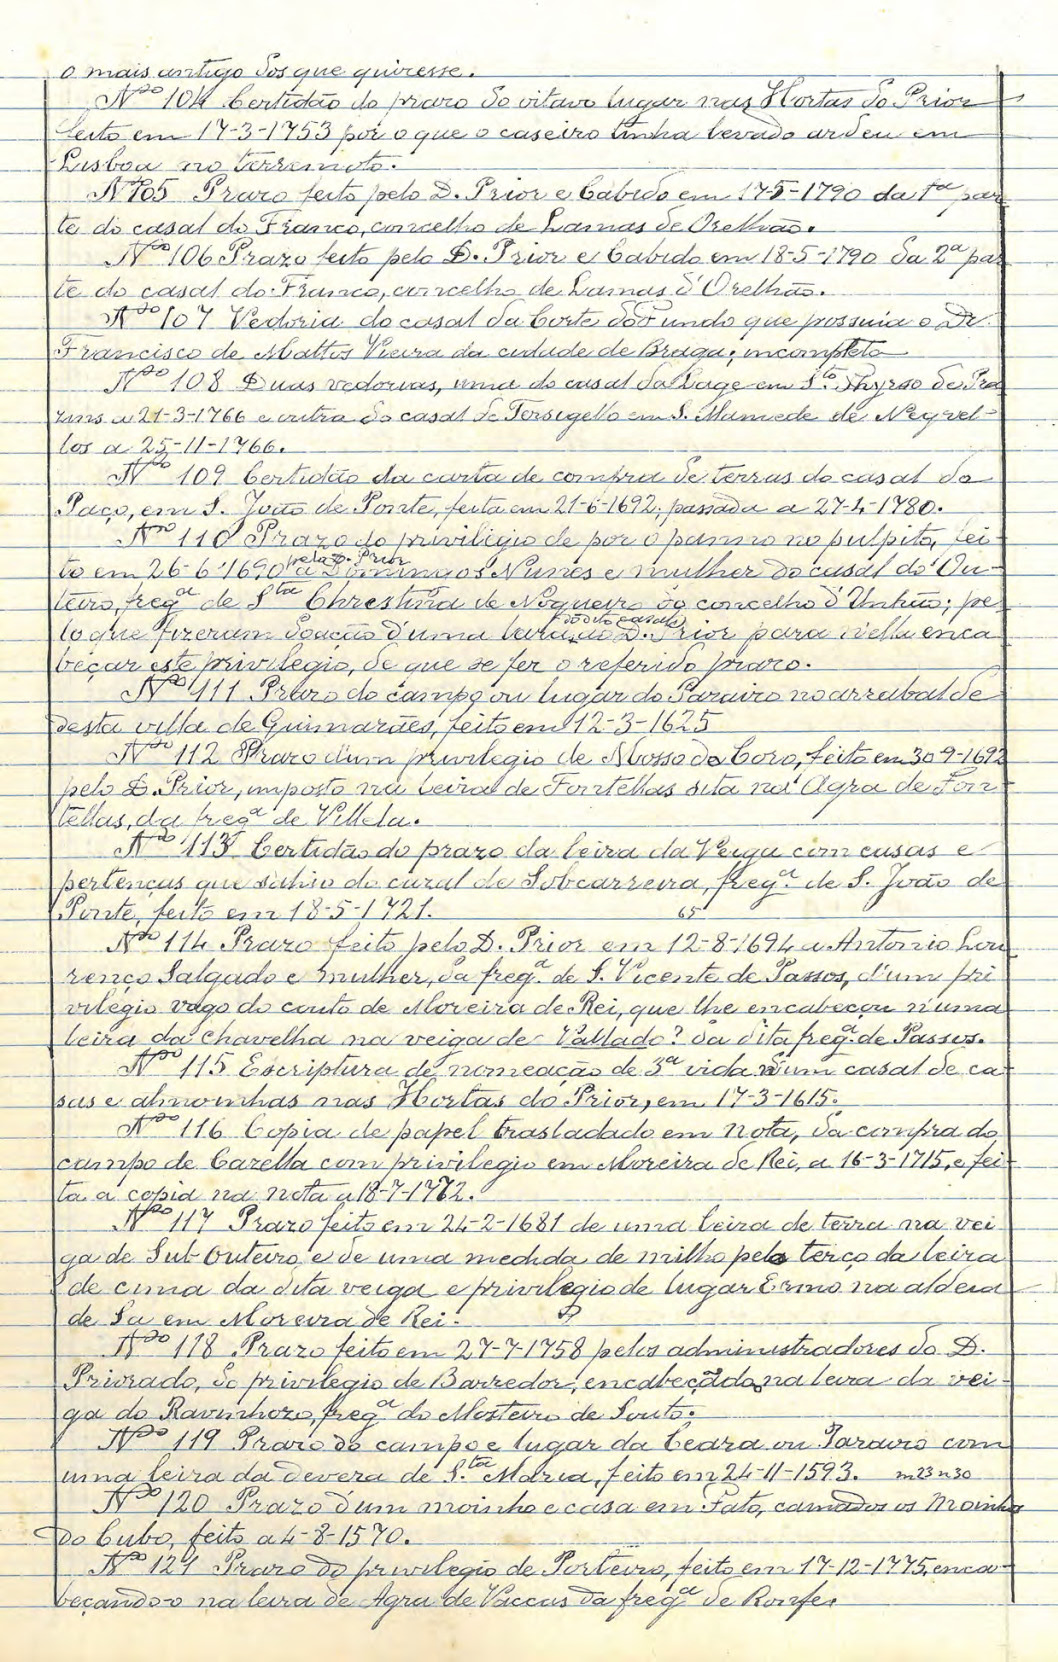 o mais antigo dos que quizesse.
Nº 104 Certidão do prazo do oitavo lugar nas Hortas do Prior
feito em 17-3-1753 por o que o caseiro tinha levado ardeu em
Lisboa no terremoto.
Nº 105 Prazo feito pelo D. Prior e Cabido em 17-5-1790 da 1ª par
te do casal do Franco, concelho de Lamas de Orelhão.
Nº 106 Prazo feito pelo D. Prior e Cabido em 18-5-1790 da 2ª par
te do casal do Franco, concelho de Lamas d'Orelhão.
Nº 107 Vedoria do casal da Corte do Fundo que possuia o Dr.
Francisco de Mattos Vieira da cidade de Braga; incompleto
Nº 108 Duas vedorias, uma do casal da Lage em S.to Thyrso de Pra
zins a 21-3-1766 e outra do casal de Torsigello em S. Mamede de Negrel-
los a 25-11-1766.
Nº 109 Certidão da carta de compra de terras do casal do
Paço, em S. João de Ponte, feita em 21-6-1692; passada a 27-4-1780.
Nº 110 Prazo do privilegio de por o panno no pulpito, fei-
pelo D. Prior
to em 26-6-1690 a Domingos Nunes e mulher do casal do Ou-
teiro, freg.ª de S.ta Chrestina de Nogueira do concelho d'Unhão; pe-
do dito casal
lo que fizeram doação d'uma leira ao D. Prior para n'ella enca
beçar este privilegio, de que se fez o referido prazo.
Nº 111 Prazo do campo ou lugar do Paraiso no arrabalde
desta villa de Guimarães, feito em 12-3-1625
Nº 112 Prazo d'um privilegio de Mosso do Coro, feito em 30-9-1692
pelo D. Prior, imposto na leira de Fontellas sita na Agra de Fon
tellas, da freg.ª de Villela.
Nº 113 Certidão do prazo da leira da Veiga com casas e
pertenças que sahio do cazal de Sobcarreira, freg.ª de S. João de
Ponte, feito em 18-5-1721.
65
Nº 114 Prazo feito pelo D. Prior em 12-8-1694 a Antonio Lou
renço Salgado e mulher, da freg.ª de S. Vicente de Passos, d'um pri
vilegio vago do couto de Moreira de Rei, que lhe encabeçou n'uma
leira da chavelha na veiga de Vallado? da dita freg.ª de Passos.
Nº 115 Escriptura de nomeação de 3ª vida d'um casal de ca-
sas e almoinhas nas Hortas do Prior, em 17-3-1615.
Nº 116 Copia de papel trasladado em nota, da compra do
campo de Cazella com privilegio em Moreira de Rei, a 16-3-1715, e fei-
ta a copia na nota a 18-7-1772.
Nº 117 Prazo feito em 24-2-1681 de uma leira de terra na vei
ga de Sub Outeiro e de uma medida de milho pelo terço da leira
de cima da dita veiga e privilegio de lugar Ermo na aldeia
de Sa em Moreira de Rei.
Nº 118 Prazo feito em 27-7-1758 pelos administradores do D.
Priorado, do privilegio de Barredor, encabeçado na leira da vei-
ga do Ravinhozo, freg.ª do Mosteiro de Souto.
Nº 119 Prazo do campo e lugar da Ceara ou Paraiso com
uma leira da devera de S.ta Maria, feito em 24-11-1593. m 23 n 30
Nº 120 Prazo d'um moinho e casa em Fato, camados os Moinhos
do Cubo, feito a 4-8-1570.
Nº 121 Prazo do privilegio de Porteiro, feito em 17-12-1775, enca-
beçando-o na leira de Agra de Vaccas da freg.ª de Ronfe.